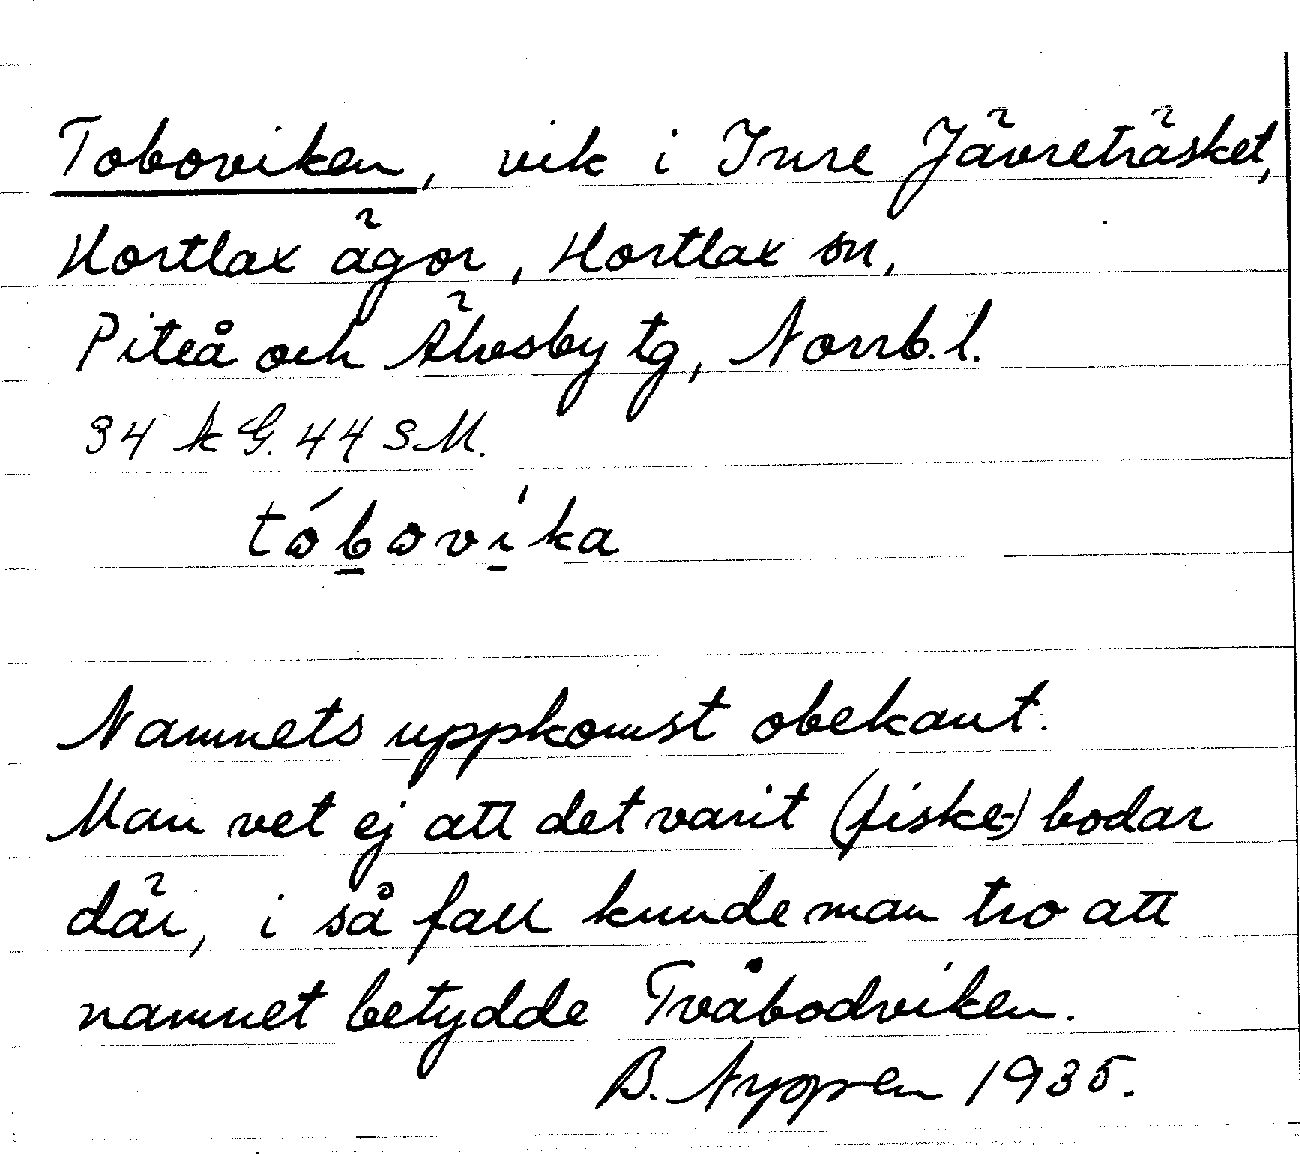 Toboviken, vik i Inre Jävreträsket,
Hortlax ägor, Hortlax sn,
Piteå och Älvsby tg, Norrb. l.
34 k G. 44 S M.
tóbovika
Namnets uppkomst obekant.
Man vet ej att det varit (fiske-) bodar
där, i så fall kunde man tro att
namnet betydde Tvåbodviken.
B. Nyppen 1935.